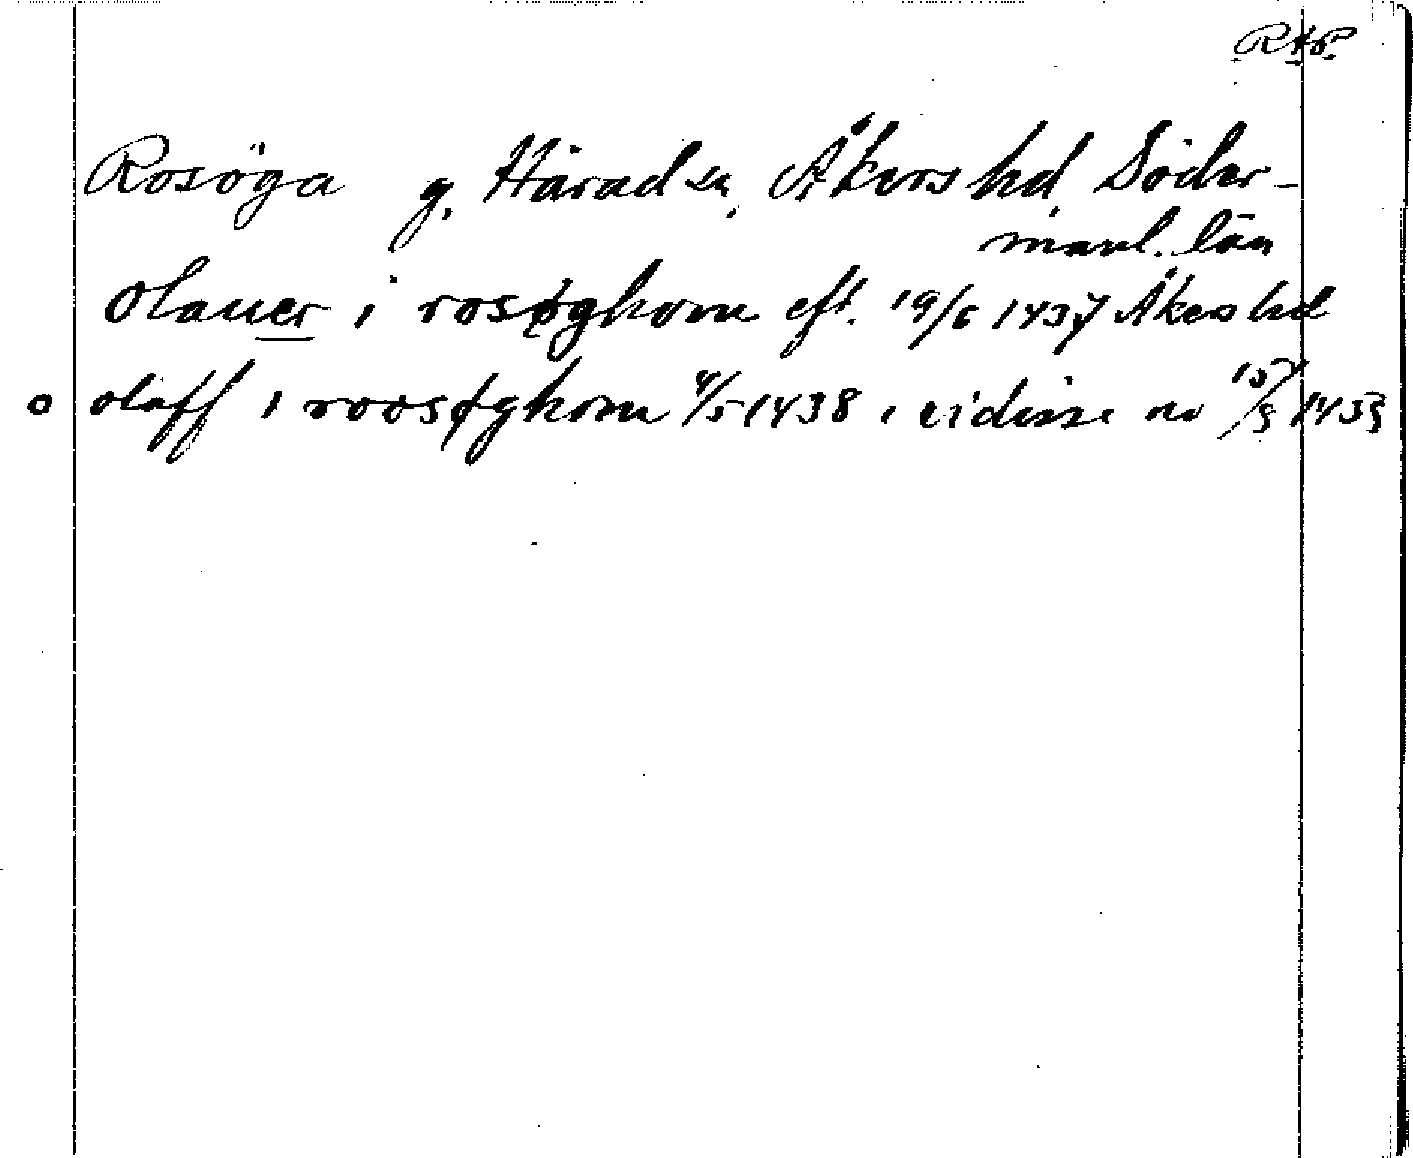 RAP.
Rosöga g, Härads sn, Åkers hd, Söder-
manl. län
olauer i rosøghom eft. 19/6 1437 Åkers hd
o olaff i roosøghom 4/5 1438 i vidisse av 15/9 1459